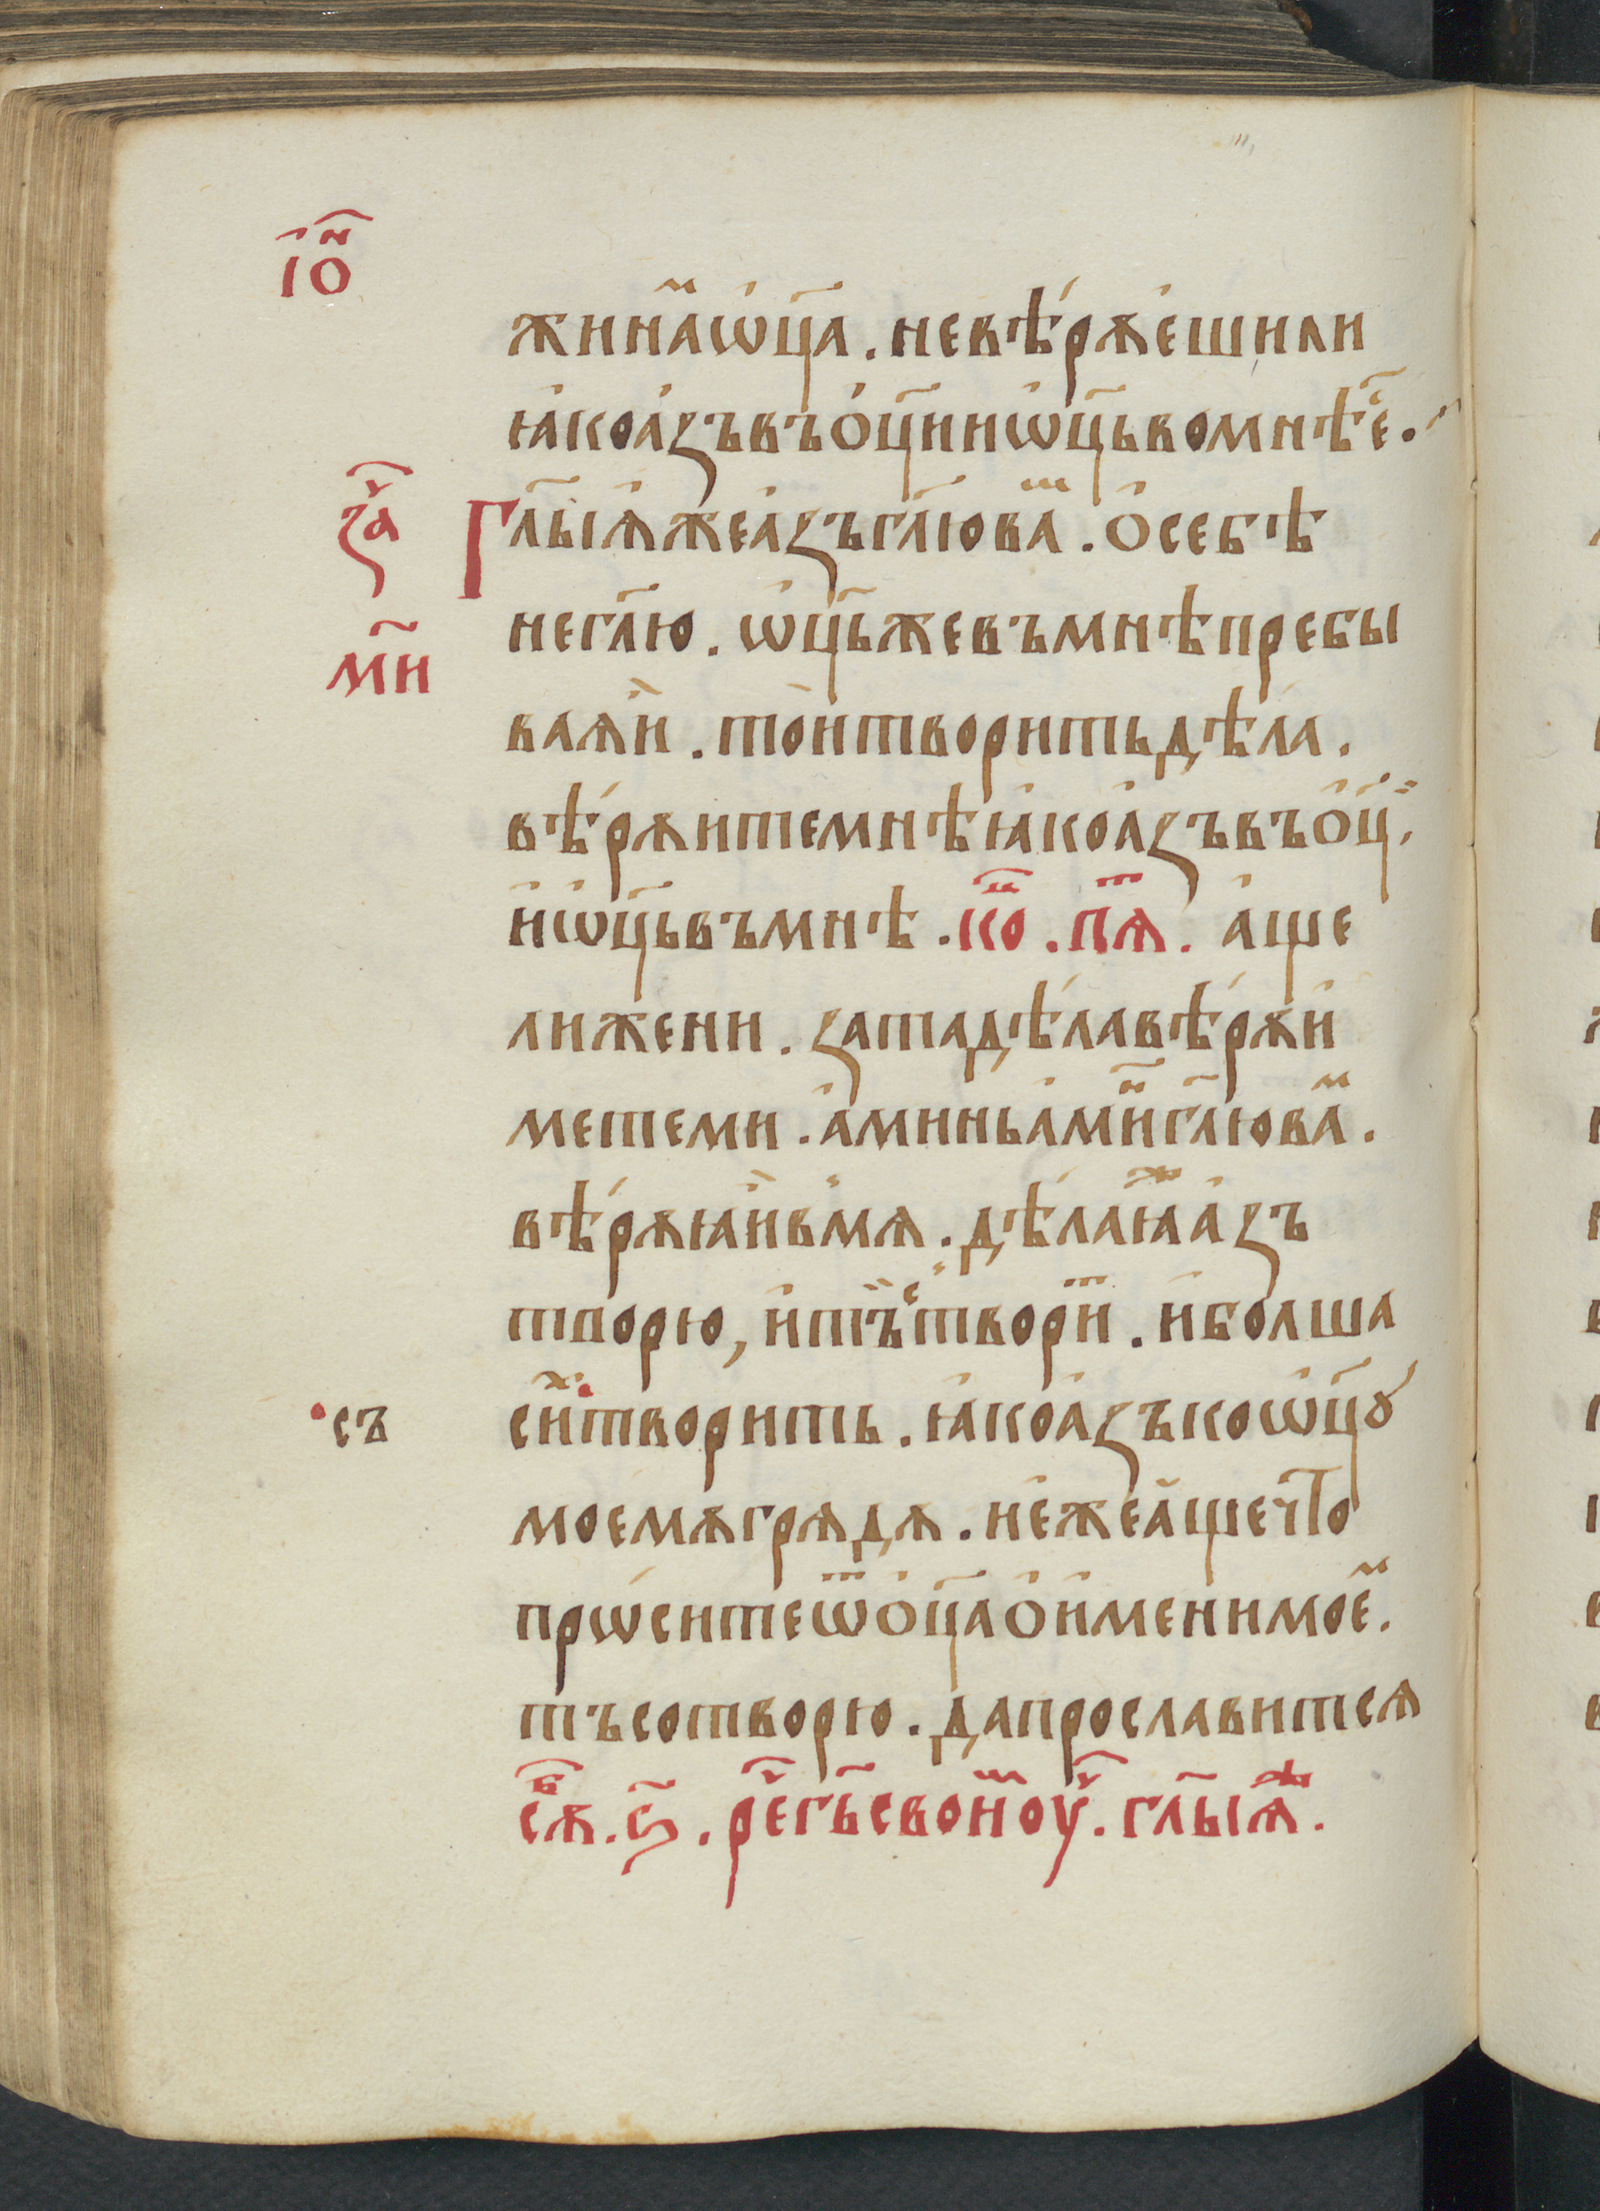 іѡ҃ⷩ
жи на́ⷨ ѡ҆ц҃а . не вѣ́рѫеши ли
ꙗ҆ко а҆зъ въ о҆ц҃и и ѡ҆ц҃ь во мнѣ є҆ⷭ҇ .
за҃ⷱ
Гл҃ы ꙗ҆̀же а҆зъ гл҃ю ваⷨ . о҆ себѣ
не гл҃ю . ѡ҆ц҃ь же въ мнѣ пребы
мн҃
ваѧ́и . то́и творить дѣла .
вѣ́рѫите мнѣ ꙗ҆ко а҆зъ въ о҆ц҃ и
и҆ ѡ҆ц҃ь въ мнѣ . ко҃ⷰ . пѧ҃ⷮ . а҆ще
ли же ни . за та дѣ́ла вѣ́рѫи
ме те ми . а҆минь а҆ми҃ⷩ гл҃ю ваⷨ .
вѣ́рѫꙗи в мѧ . дѣ́ла ꙗ҆ⷤ а҆зъ
творю , и҆ тъ̀ ⷭ҇твориⷮ . и҆ болша
съ
сиⷯ творить . ꙗ҆ко а҆зъ ко ѡ҆ц҃ꙋ
моемѫ грѧдѫ . и є҆же а҆ще что
прѡ́сите ѿ о҆ц҃а о҆ и҆мени моеⷨ .
тъ сотворю . да прославитсѧ
сѫ҃ⷠ . ѕ҃ . реⷱ҇ гь҃ своиⷨ оуⷱ҇ . гл҃ы ꙗⷤ .